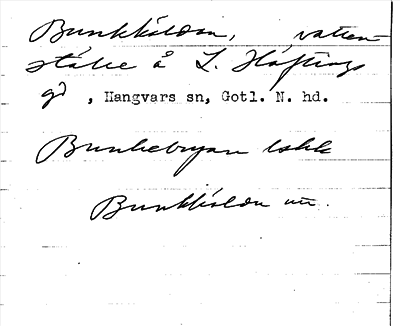 Bunkkäldan, vatten-
ställe å L. Häftings
gd , Hangvars sn, Gotl. N. hd.
Bunkebryan
Bunkkäldu un.